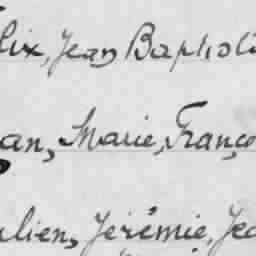 lix, Jean Baptist
an, Marie, Franço
ulien, Jérémie, Jea